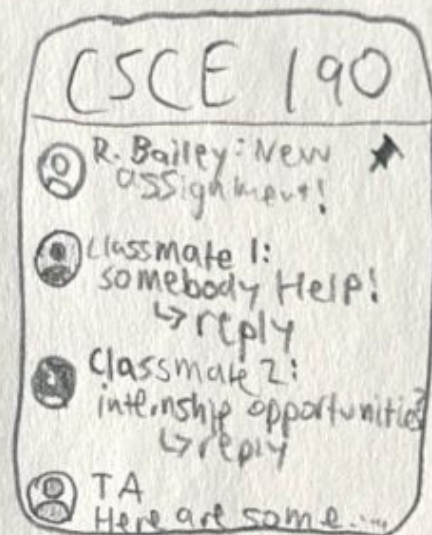 CSCE 190
R. Bailey: New
assignment!
Classmate 1:
somebody Help!
↳ reply
Classmate 2:
internship opportunities?
↳ reply
TA
Here are some....